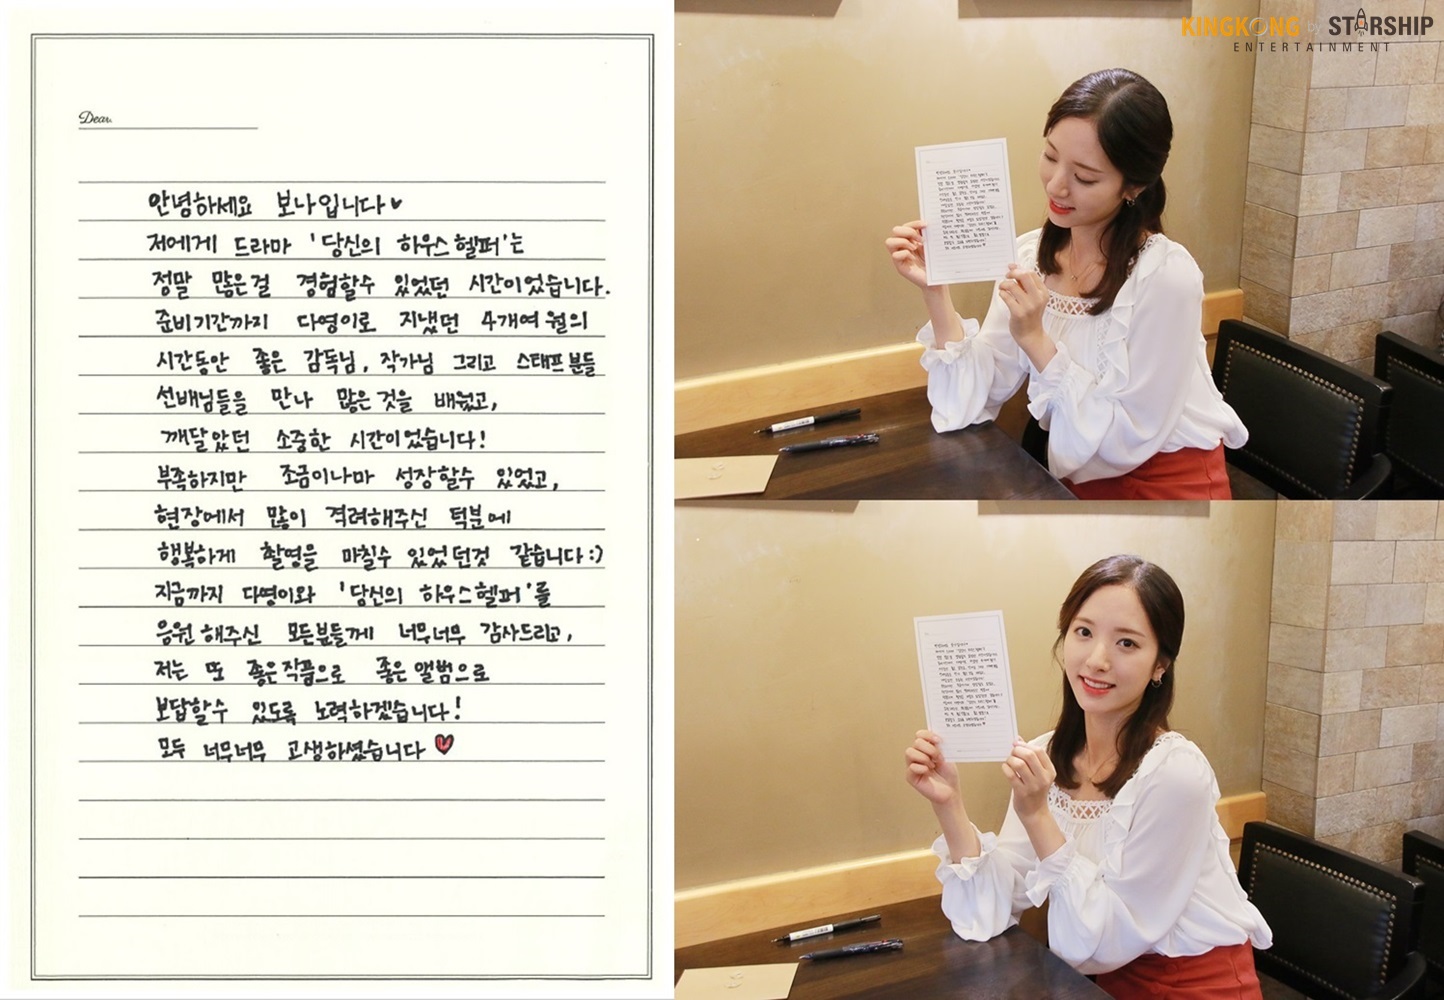 Dear.
안녕하세요 보나입니다♥
저에게 드라마 '당신의 하우스헬퍼'는
정말 많은걸 경험할수 있었던 시간이었습니다.
준비기간까지 다영이로 지냈던 4개여월의
시간동안 좋은 감독님, 작가님 그리고 스태프분들
선배님들을 만나 많은것을 배웠고,
깨달았던 소중한 시간이었습니다!
부족하지만 조금이나마 성장할수 있었고,
현장에서 많이 격려해주신 덕분에
행복하게 촬영을 마칠수 있었던것 같습니다:)
지금까지 다영이와 '당신의 하우스헬퍼'를
응원해주신 모든분들께 너무너무 감사드리고,
저는 또 좋은작품으로 좋은앨범으로
보답할수 있도록 노력하겠습니다!
모두 너무너무 고생하셨습니다♥
KINGKONG by STARSHIP
ENTERTAINMENT